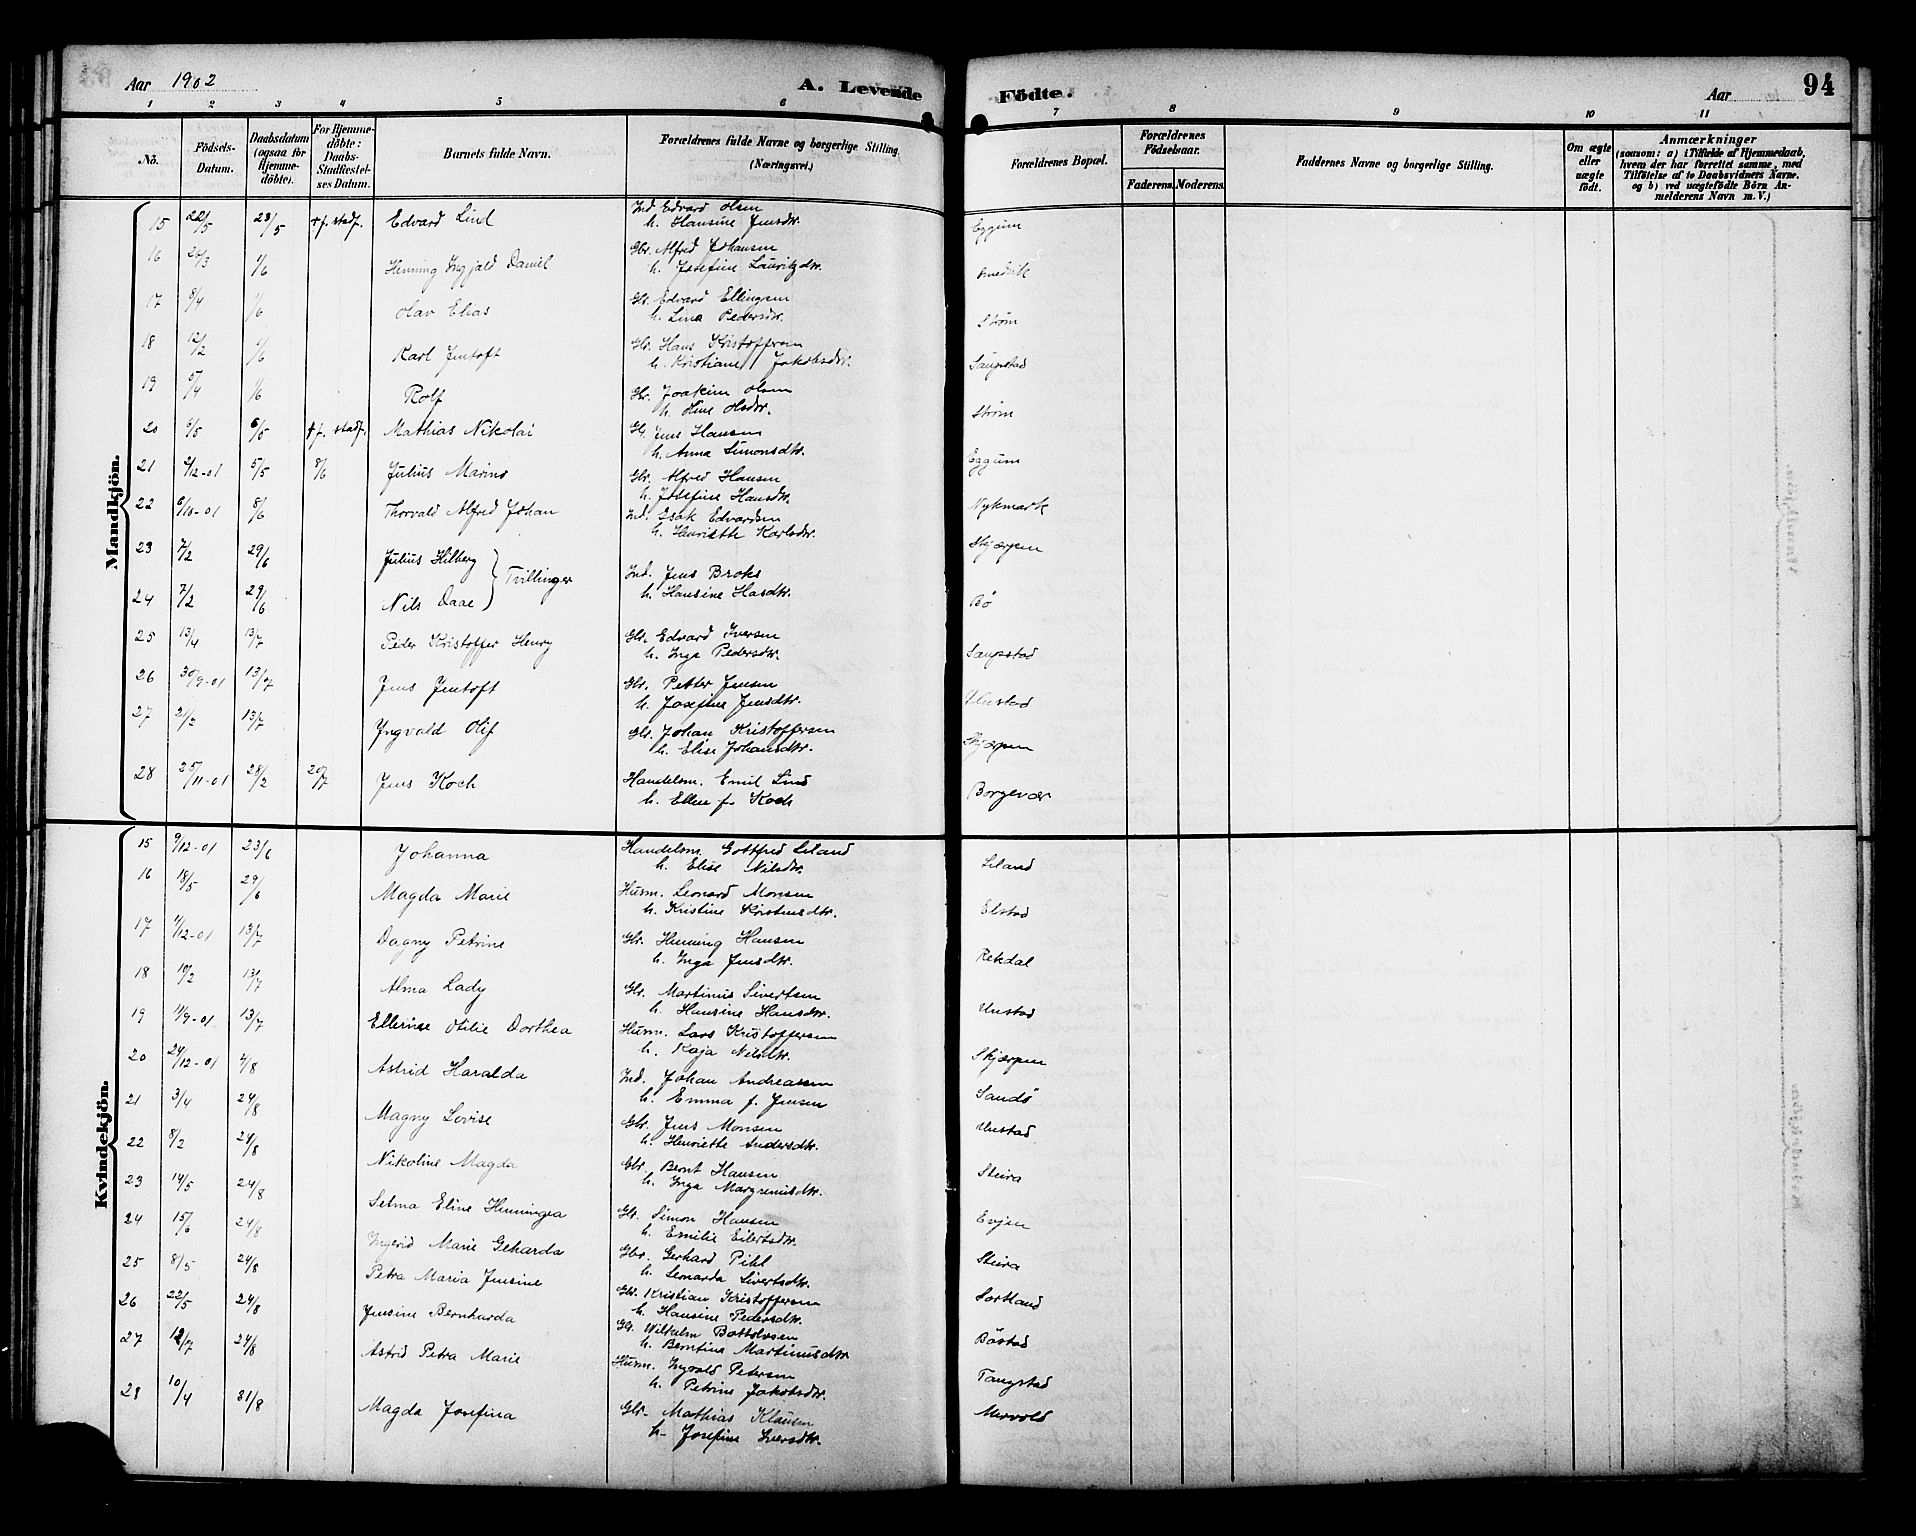 Aar 1902
A. Levende Födte.
Aar
94
1 2 3 4 5 6 7 8 9 10 11
No. | Födsels-Datum. | Daabsdatum (ogsaa for Hjemme-döbte). | For Hjemme-döbte: Daabs-Stadfæstel-ses Datum. | Barnets fulde Navn. | Forældrenes fulde Navne og borgerlige Stilling. (Næringsvei.) | Forældrenes Bopæl. | Forældrenes Födselsaar. Faderens. Moderens. | Faddernes Navne og borgerlige Stilling. | Om ægte eller uægte födt. | Anmærkninger (saasom: a) i Tilfælde af Hjemmedaab, hvem der har forrettet samme, med Tilföielse af to Daabsvidners Navne. og b) ved uægtefödte Börn An-melderens Navn m. V.)
Mandkjön.
15 22/5 23/5 † f. stadf. Edvard Lind Ind. Edvard Olsen
h. Hansine Jensdtr. Eggum
16 26/3 1/6 Henning Ingjald Daniel Gbr. Alfred Johansen
h. Josefine Lauritzdtr.
17 8/4 1/6 Olav Elias Gbr. Edvard Ellingsen
h. Lina Pedersdtr. Strøm
18 12/2 1/6 Karl Jentoft Gbr. Hans Kristoffersen
h. Kristiane Jakobsdtr. Saupstad
19 5/4 1/6 Rolf Gbr. Joakim Olsen
h. Oline Olsdtr. Strøm
20 6/5 6/5 † f. stadf. Mathias Nikolai Gbr. Jens Hansen
h. Anna Simonsdtr. Eggum
21 2/12-01 5/5 8/6 Julius Marins Gbr. Alfred Hansen
h. Josefine Hansdtr. Nykmark
22 6/10-01 8/6 Thorvald Alfred Johan Ind. Isak Edvardsen
h. Henriette Karlsdtr. Skjærpen
23 7/2 29/6 Julius Hilberg } Tvillinger Ind. Jens Broks
24 7/2 29/6 Nils Daae h. Hansine Hasdtr. Bö
25 13/4 13/7 Peder Kristoffer Henry Gbr. Edvard Iversen
h. Inga Pedersdtr. Saupstad
26 30/9-01 13/7 Jens Jentoft Gbr. Petter Jensen
h. Josefine Jensdtr. Unstad
27 21/2 13/7 Yngvald Olif Gbr. Johan Kristoffersen
h. Elise Johansdtr. Skjærpen
28 25/11-01 28/2 20/7 Jens Koch Handelsm. Emil Lind
h. Ellen f. Koch Borgevær
Kvindekjön.
15 9/12-01 23/6 Johanna Handelsm. Gottfred Liland
h. Elise Nilsdtr. Liland
16 18/5 29/6 Magda Marie Husm. Leonard Monsen
h. Kristine Kristensdtr. Elstad
17 11/12-01 13/7 Dagny Petrine Gbr. Henning Hansen
h. Inga Jensdtr. Rekdal
18 10/2 13/7 Alma Lady Gbr. Martinus Sivertsen
h. Hansine Hansdtr. Unstad
19 11/9-01 13/7 Ellernse Otilie Dorthea Husm. Lars Kristoffersen
h. Kaja Nilsdtr. Skjærpen
20 24/12-01 4/8 Astrid Haralda Ind. Johan Andreassen
h. Emma f. Jensen Sandö
21 3/4 24/8 Magny Lovise Gbr. Jens Monsen
h. Henriette Andersdtr. Unstad
22 8/2 24/8 Nikoline Magda Gbr. Bernt Hansen
h. Inga Margreniusdtr. Steira
23 14/5 24/8 Selma Eline Henningea Gbr. Simon Hansen
h. Emilie Eilertsdtr. Evjen
24 15/6 24/8 Ingerid Marie Geharda Gbr. Gerhard Pihl
h. Leonarda Sivertsdtr. Steira
25 8/5 24/8 Petra Maria Jensine Gbr. Kristian Kristoffersen
h. Hansine Pedersdtr. Sortland
26 22/5 24/8 Jensine Bernharda Gbr. Wilhelm Bottolvsen
h. Berntine Martinusdtr. Böstad
27 12/7 24/8 Astrid Petra Marie Husm. Ingvald Petersen
h. Petrine Jakobsdtr. Tangstad
28 10/4 31/8 Magda Josefina Gbr. Mathias Klausen
h. Josefine Iversdtr. Mervold